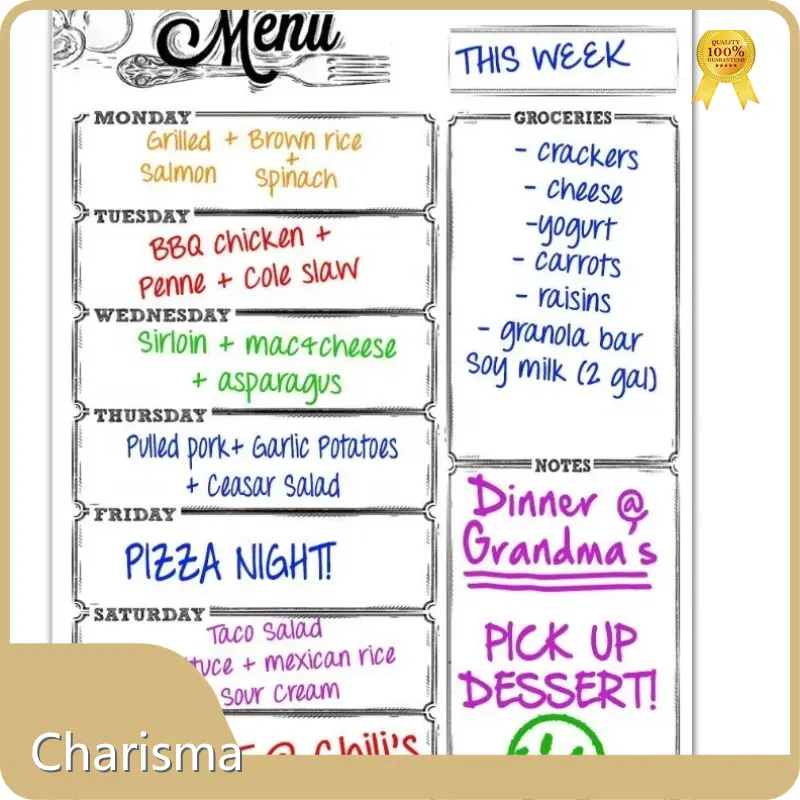 Menu
THIS WEEK
QUALITY
100%
GUARANTEED
MONDAY
Grilled + Brown rice
+
Salmon Spinach
TUESDAY
BBQ chicken +
Penne + Cole slaw
WEDNESDAY
Sirloin + mac&cheese
+ asparagus
THURSDAY
Pulled pork + Garlic Potatoes
+ Ceasar Salad
FRIDAY
PIZZA NIGHT!
SATURDAY
Taco Salad
+ mexican rice
sour cream
@ Chili's
GROCERIES
- crackers
- cheese
-yogurt
- carrots
- raisins
- granola bar
soy milk (2 gal)
NOTES
Dinner @
Grandma's
PICK UP
DESSERT!
Charisma